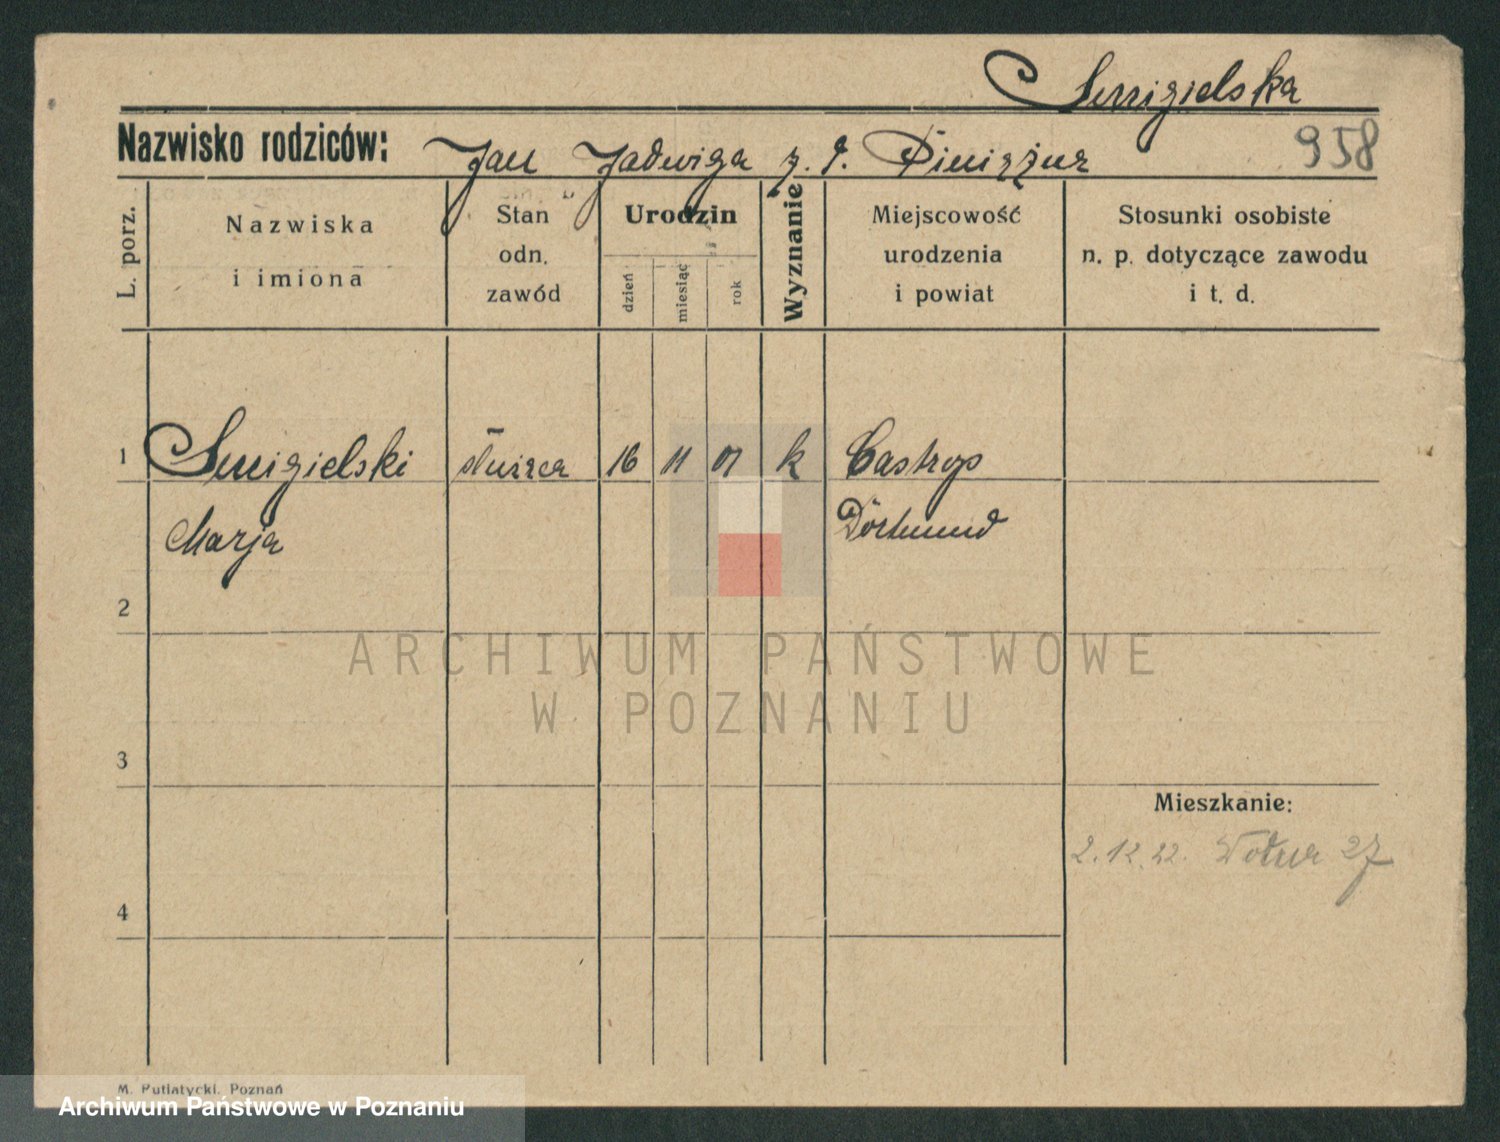 Smigielska
Nazwisko rodziców: Jan Jadwiga z. d.
958
L. porz.
Nazwiska
i imiona
Stan
odn.
zawód
Urodzin
dzień
miesiąc
rok
Wyznanie
Miejscowość
urodzenia
i powiat
Stosunki osobiste
n. p. dotyczące zawodu
i t. d.
1 Smigielski służąca 16 11 07 k Castrop
Marja Dortmund
2
3
ARCHIWUM PAŃSTWOWE
W POZNANIU
Mieszkanie:
2.12.22. Wodna 27
4
M. Putiatycki, Poznań
Archiwum Państwowe w Poznaniu